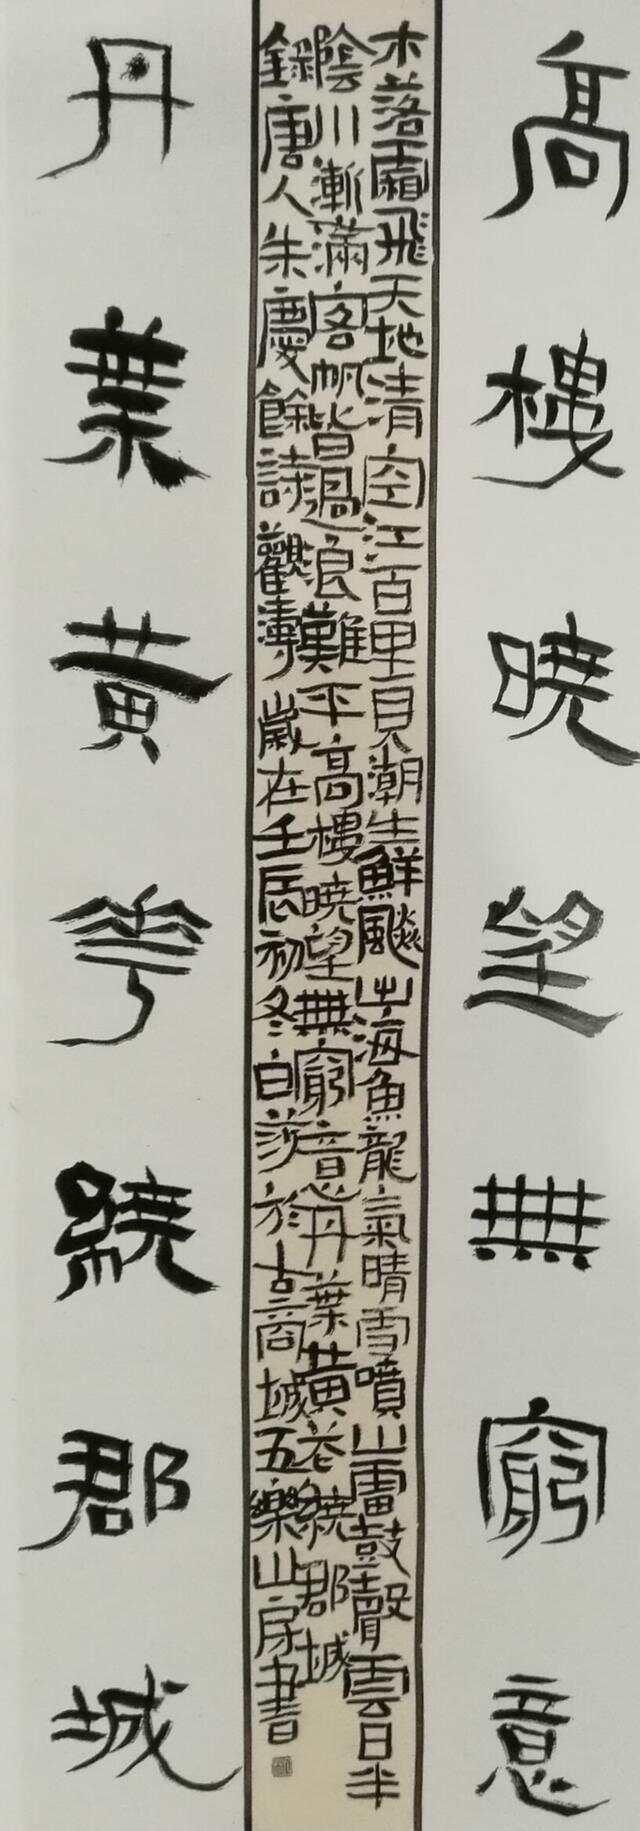 高樓曉望無窮意
木落霜飛天地清空江百里見潮生鮮飈出海魚龍氣晴雪噴山雷鼓聲雲日半
陰川漸滿客帆皆過浪難平高樓曉望無窮意丹葉黃花繞郡城
錄唐人朱慶餘詩觀濤歲在壬辰初冬白於古商城五樂山房書
丹葉黃花繞郡城